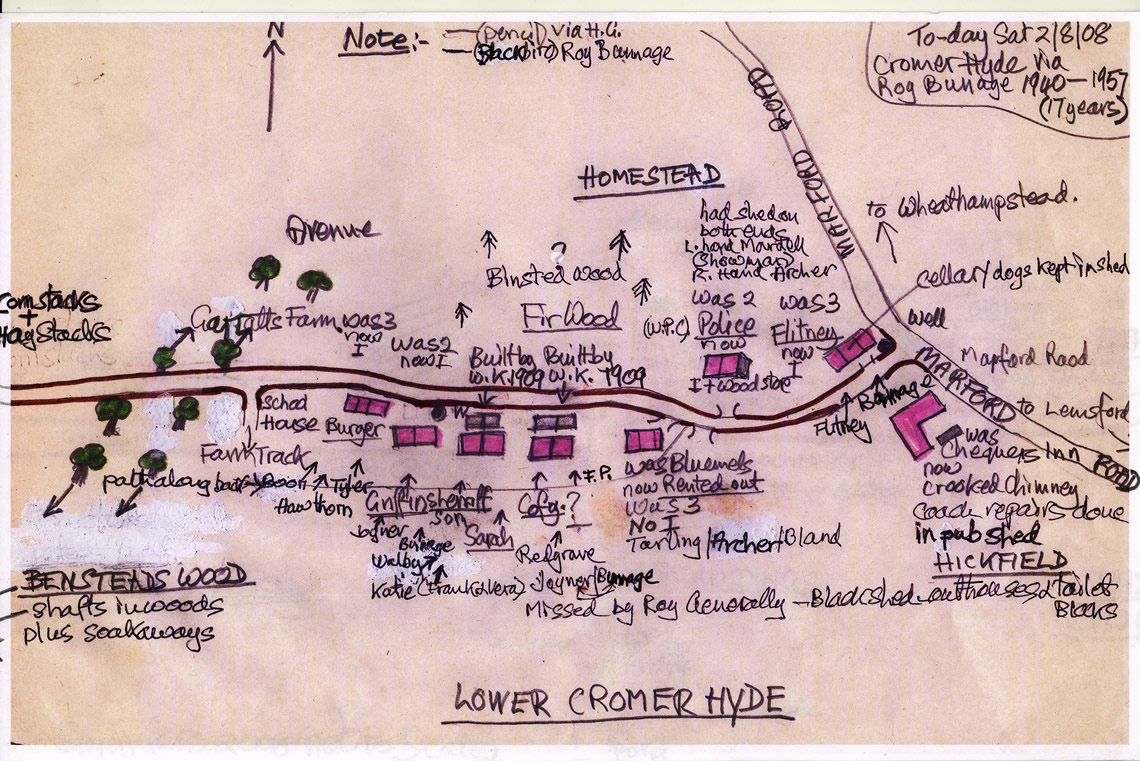 N
Note:- — (pencil) via H.G.
— (Blackbiro) Roy Bunnage
To-day Sat 2/8/08
Cromer Hyde via
Roy Bunage 1940-1957
(17 years)
MARFORD ROAD
HOMESTEAD
to Wheathampstead.
had shed on
both ends
L. hand Martell
(Showman)
R. Hand Archer
Avenue
?
Binsted wood
Fir Wood
(W.P.C)
was 2
Police
now
I + wood store
was 3
Flitney
now
I
cellar/dogs kept in shed
well
Cornstacks
+
Hay Stacks
Farm
was 3
now
I
was 2
now I
Built by
W.K. 1909
Built by
W.K. 1909
Marford Road
MARFORD ROAD
to Lemsford
School
House
Burger
W
Flitney
Bunnage
was
Chequers Inn
now
crooked chimney
coach repairs done
in pub shed
HICKFIELD
Farm Track
path along back
Hawthorn
Tyler
Joyner
Bunnage
Walby
Katie (Frank & Vera)
son
Sarah
?
F.P.
Redgrave
Joyner/Bunnage
was Bluemels
now Rented out
was 3
No I
Tarling/Archer/Bland
BENSTEADS WOOD
- shafts in woods
plus soakaways
Missed by Roy Generally - Black shed - outhouses & Toilet
Blocks
LOWER CROMER HYDE